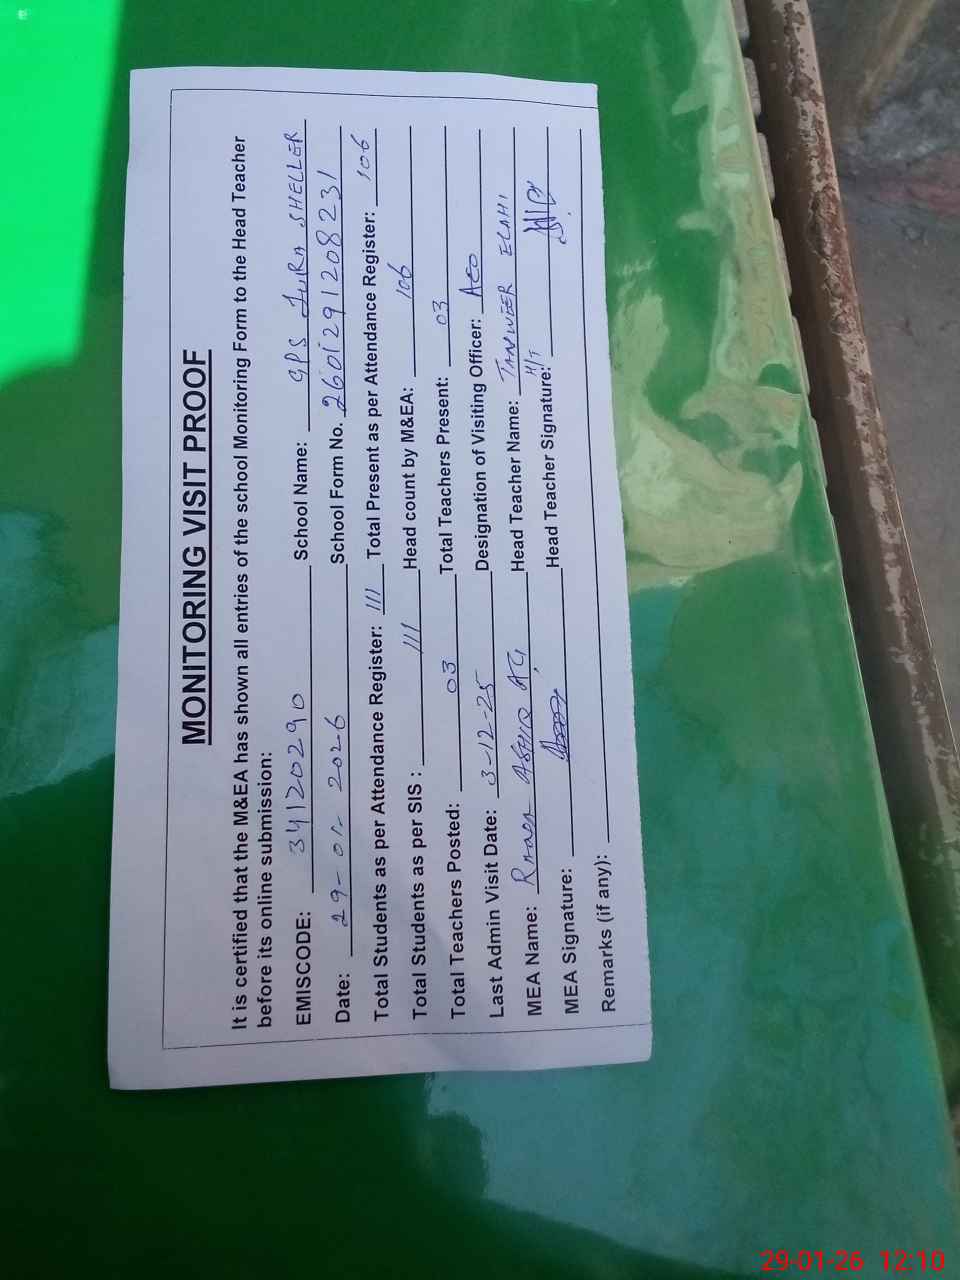 MONITORING VISIT PROOF
It is certified that the M&EA has shown all entries of the school Monitoring Form to the Head Teacher
before its online submission:
EMISCODE: 34120290 School Name: GPS SHELLER
Date: 29-01-2026 School Form No. 2601291208231
Total Students as per Attendance Register: 111 Total Present as per Attendance Register: 106
Total Students as per SIS : 111 Head count by M&EA: 106
Total Teachers Posted: 03 Total Teachers Present: 03
Last Admin Visit Date: 3-12-25 Designation of Visiting Officer: AEO
MEA Name: ASHIQ Head Teacher Name: TANVEER ELAHI
MEA Signature: Head Teacher Signature: H/T
Remarks (if any):
29-01-26 12:10